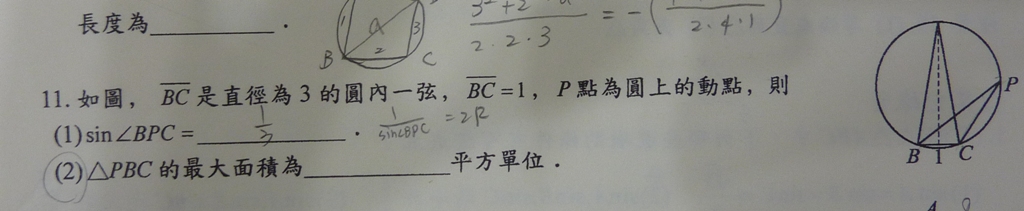 長度為____________.
1 a 3 2 B C
3²+2²
2·2·3
= -(
2·4·1
)
11. 如圖， BC 是直徑為 3 的圓內一弦， BC =1， P 點為圓上的動點，則
(1) sin∠BPC = 1/3 . 1/sin∠BPC = 2R
(2) △PBC 的最大面積為____________平方單位．
P
B 1 C
A